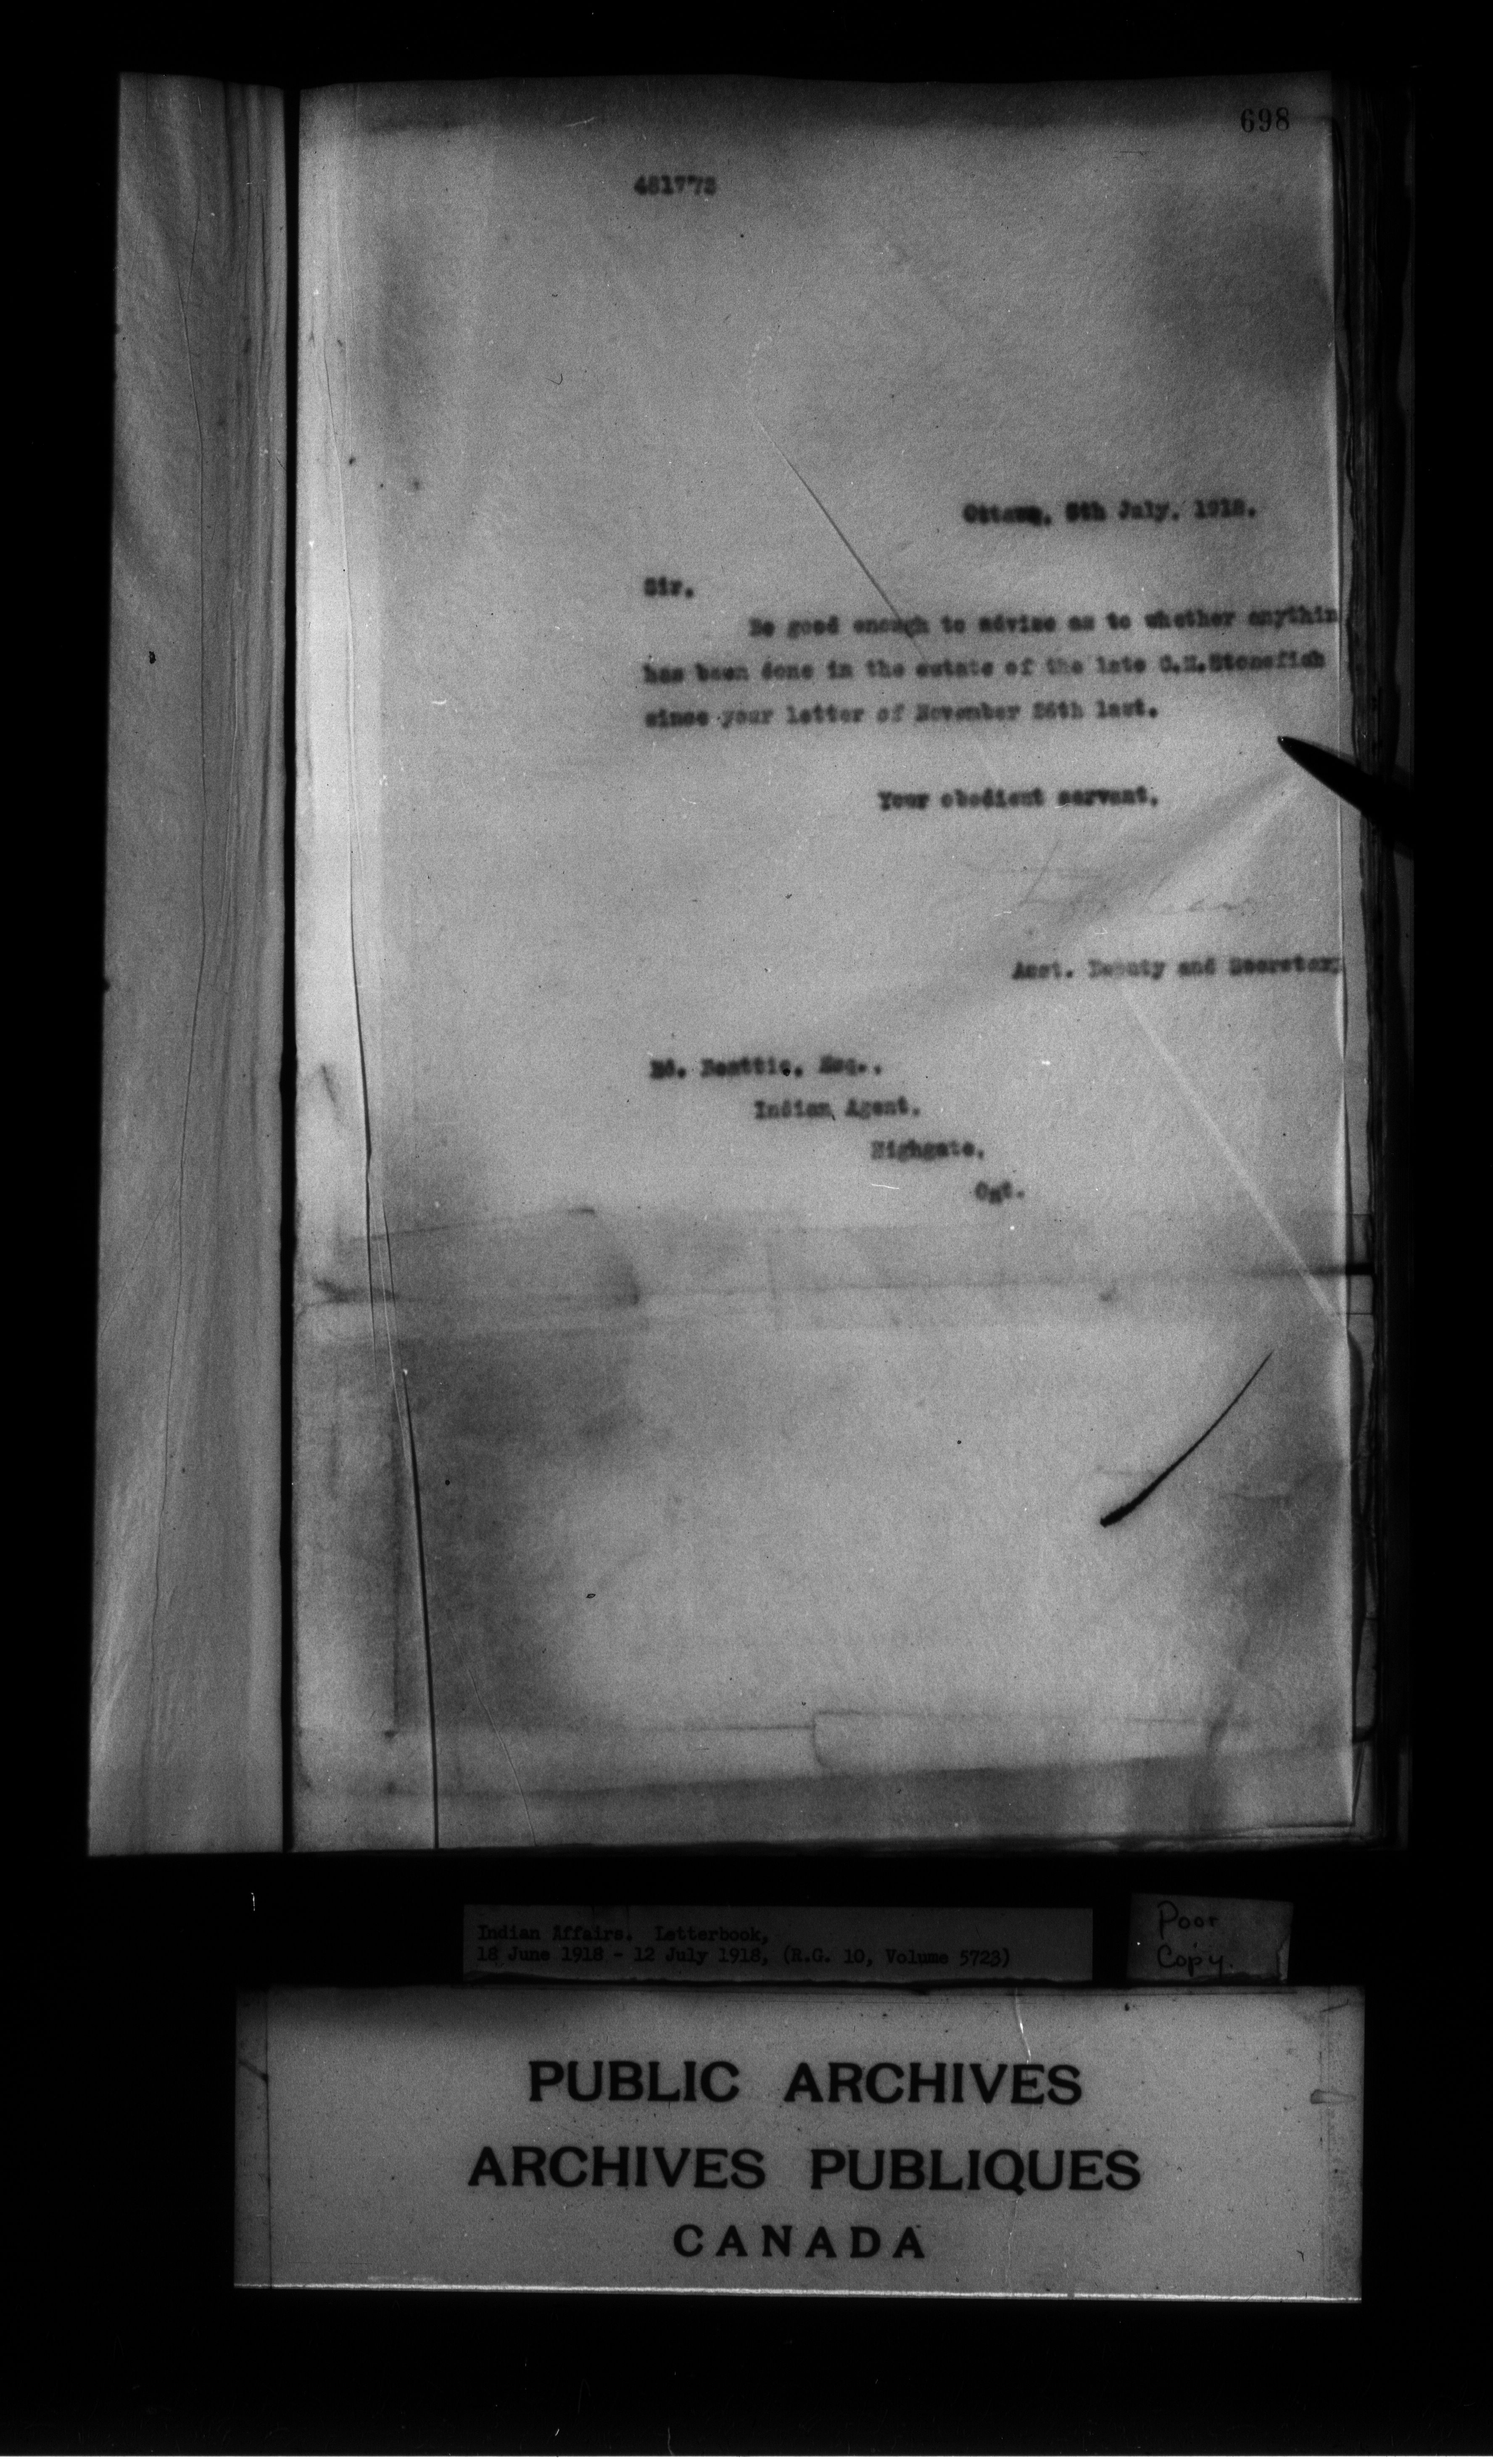 698
481773
Ottawa, 5th July, 1918.
Sir,
Be good enough to advise as to whether anythin
has been done in the estate of the late C.H.Stonefish
since your letter of November 26th last.
Your obedient servant,
Asst. Deputy and Secretary
Ed. Beattie, Esq.,
Indian Agent,
Highgate,
Ont.
Indian Affairs. Letterbook,
18 June 1918 - 12 July 1918, (R.G. 10, Volume 5723)
Poor
Copy.
PUBLIC ARCHIVES
ARCHIVES PUBLIQUES
CANADA